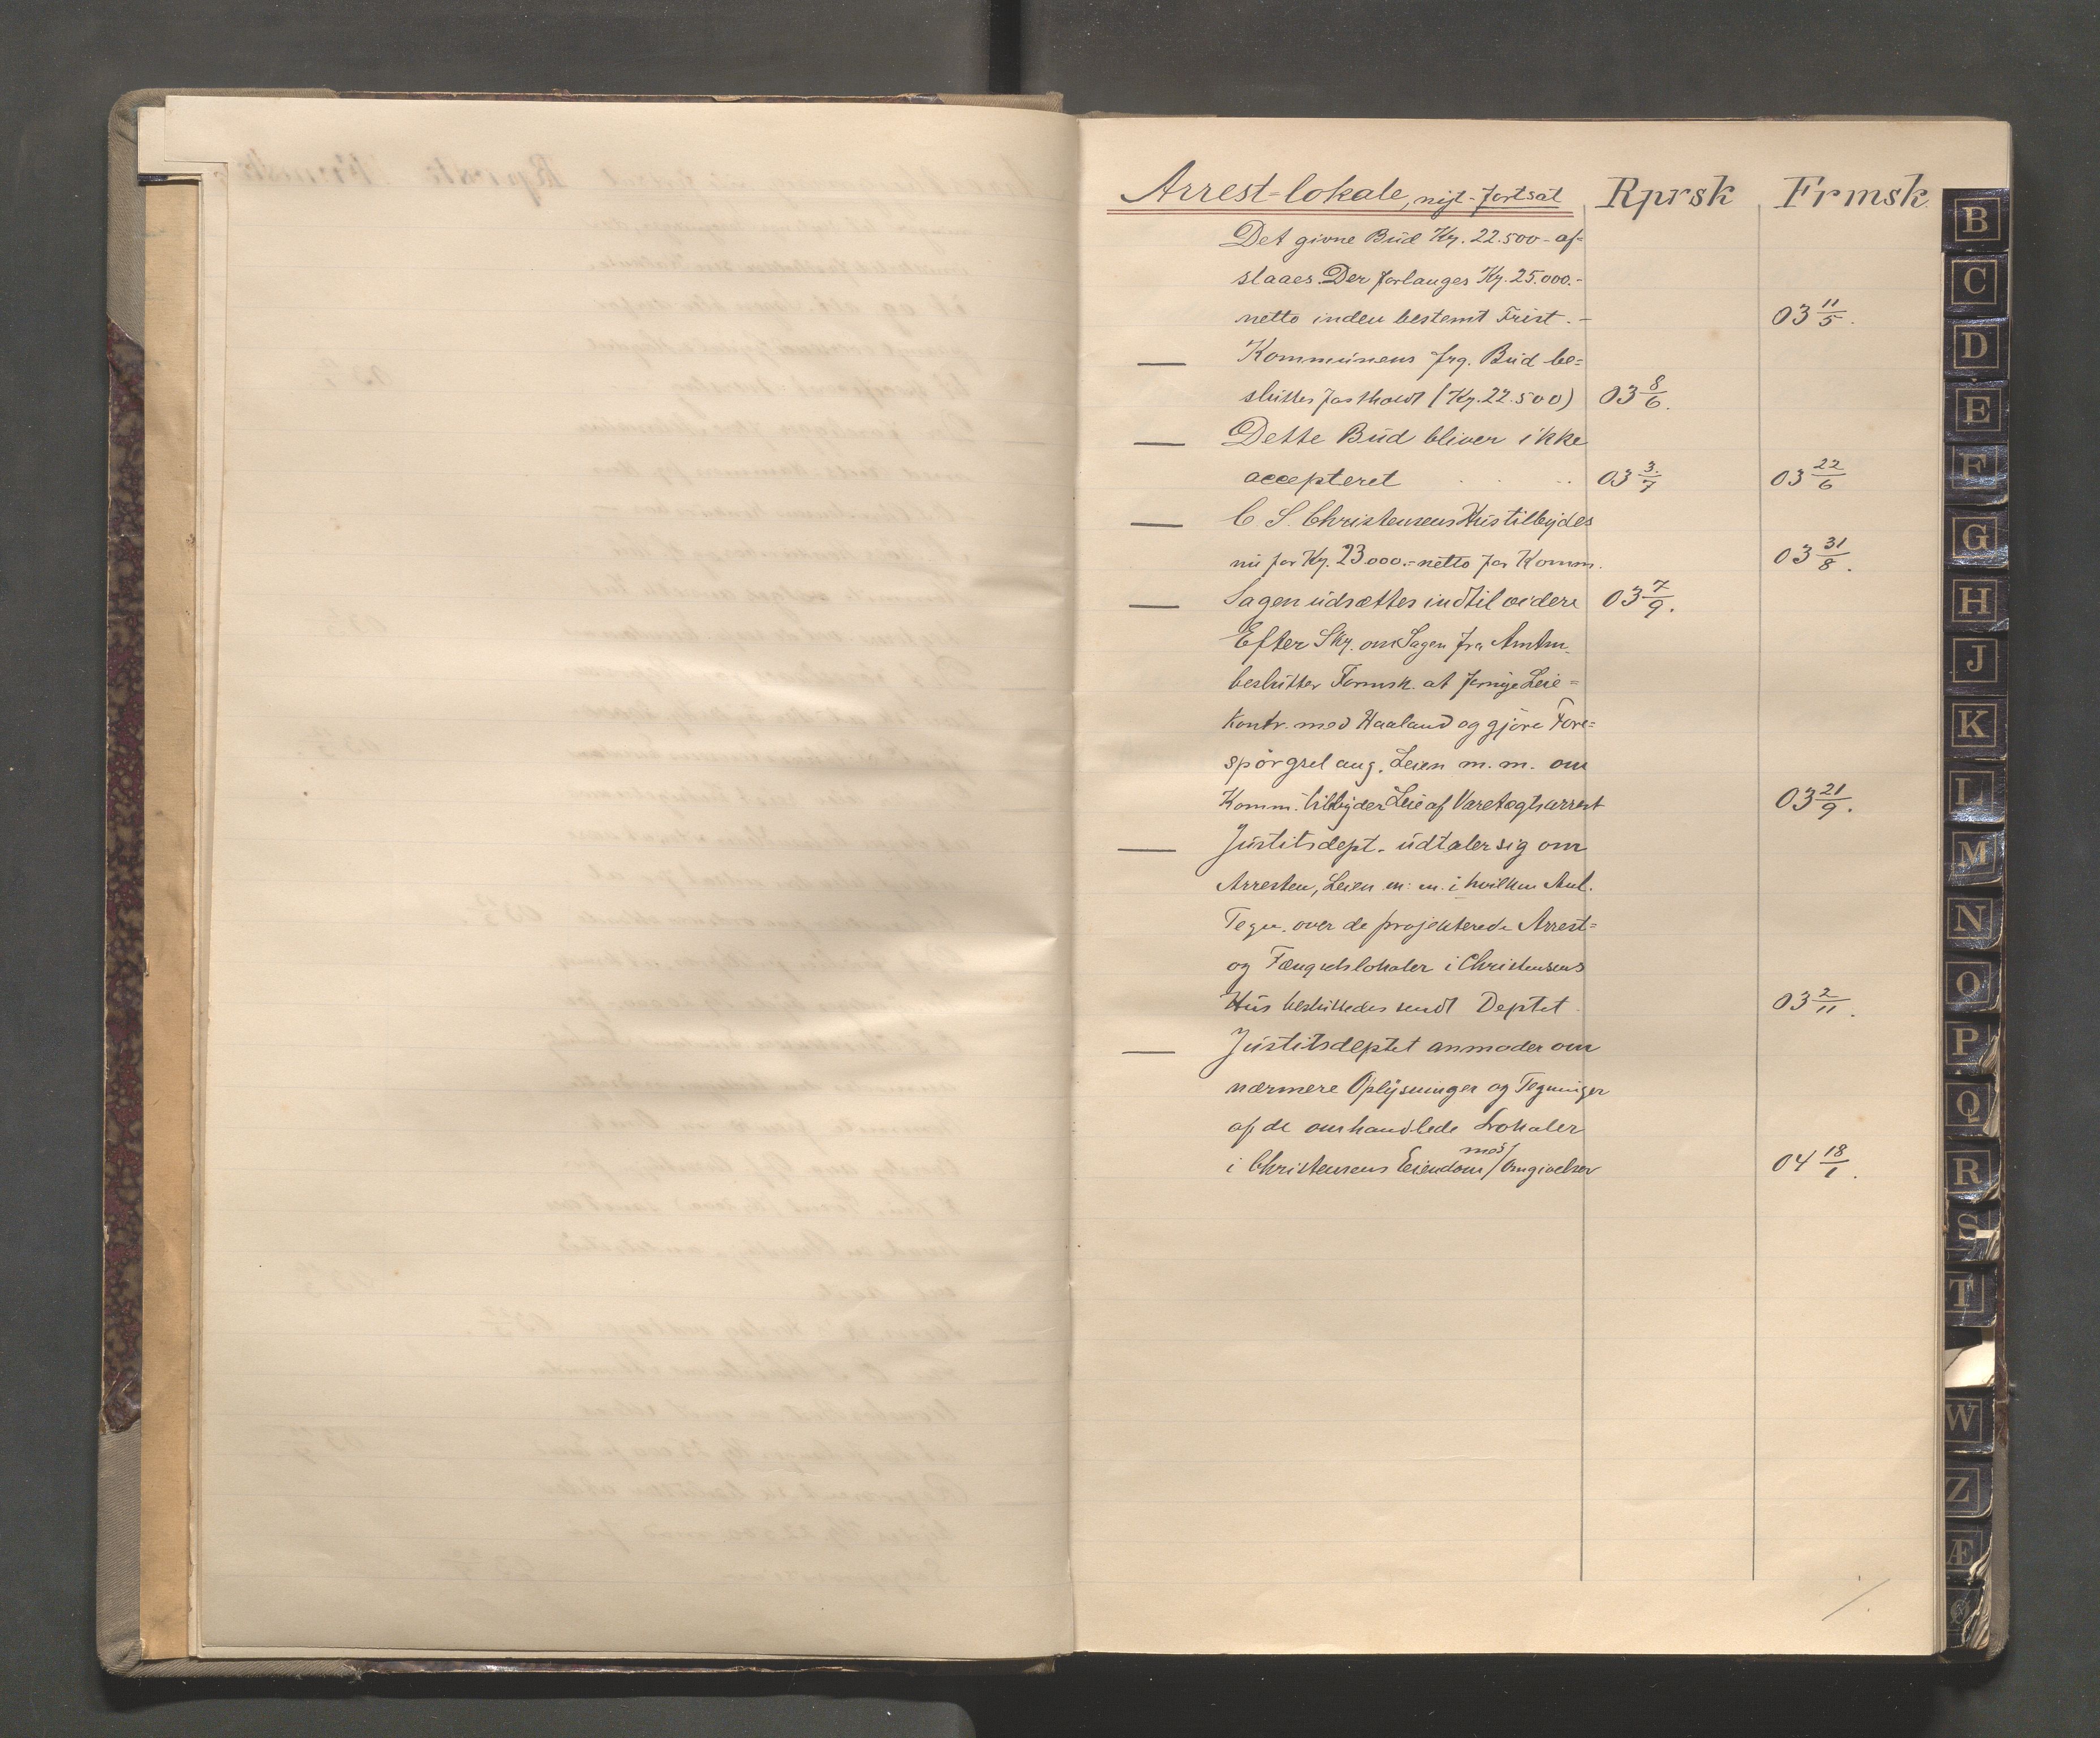 Arrest=lokale, nyt-fortsat Rprsk Frmsk.
Det givne Bud Kr. 22.500- af=
slaaes. Der forlanges Kr. 25.000.-
netto inden bestemt Frist. - 03 11/5.
— Kommunens frg. Bud be=
sluttes fastholdt (Kr. 22.500) 03 8/6.
— Dette Bud bliver ikke
accepteret . . .. 03 3./7 03 22/6
— C. S. Christensens Hus tilbydes
nu for Kr. 23000.- netto for Komm. 03 31/8.
— Sagen udsættes indtil videre 03 7/9.
Efter Skr. om Sagen fra Amtm.
beslutter Formsk. at fornye Leie=
Kontr. med Haaland og gjøre Fore=
spørgsel ang. Leien m. m. om
Komm. tilbyder Leie af Varetægtsarrest 03 21/9.
— Justitsdept. udtaler sig om
Arresten, Leien m. m. i hvilken Anl.
Tegn. over de projekterede Arrest=
og Fængselslokaler i Christensens
Hus besluttedes sendt Deptet. 03 2/11.
— Justitsdeptet anmoder om
nærmere Oplysninger og Tegninger
af de omhandlede Lokaler
i Christensens Eiendom / med / Omgivelser 04 18/1.
B
C
D
E
F
G
H
J
K
L
M
N
O
P
Q
R
S
T
W
Z
Æ
Ø